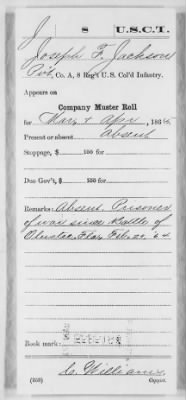 J 8 U.S.C.T.
Joseph F. Jackson
Pvt, Co. A, 8 Reg't U.S. Col'd Infantry.
Appears on
Company Muster Roll
for Mar & Apr, 186
Present or absent Absent
Stoppage, $ 100 for
Due Gov't, $ 100 for
Remarks: Absent. Prisoner
of war since Battle of
Olustee, Fla, Feb. 20, 64
Book mark:
C. Williams
(358) Copyist.